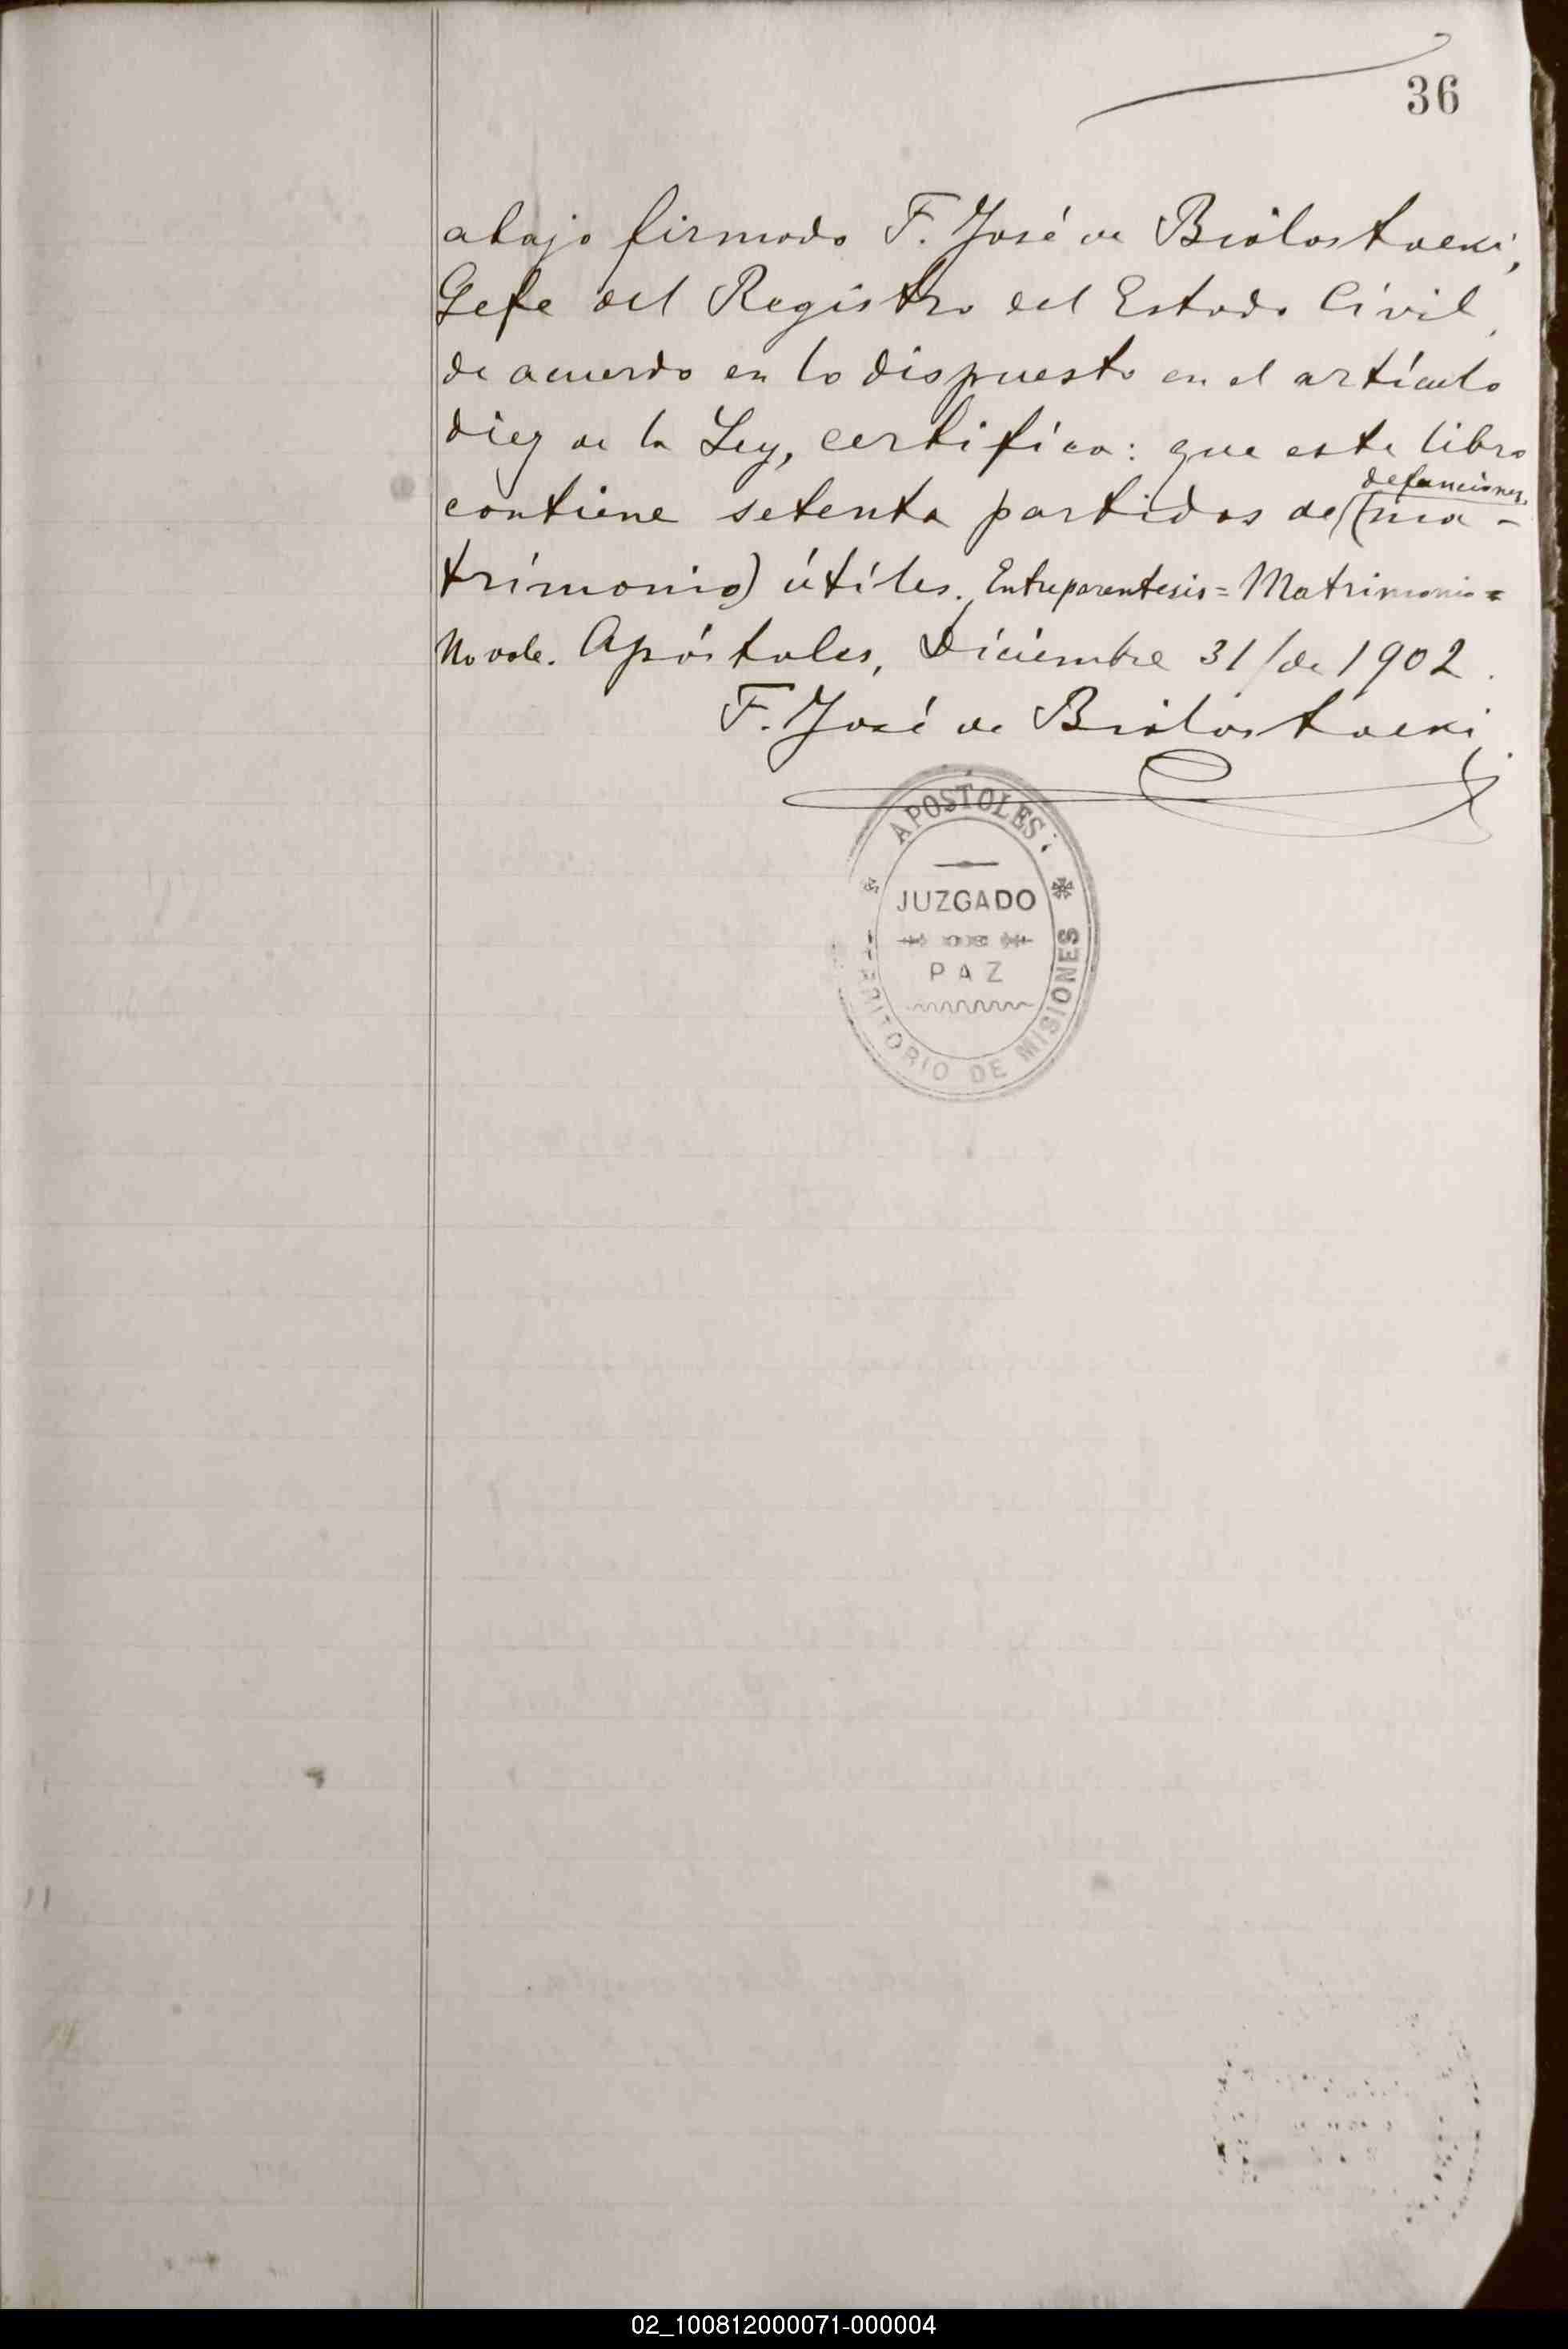 36
abajo firmado F. José de Bialostocki,
Gefe del Registro del Estado Civil,
de acuerdo en lo dispuesto en el artículo
diez de la Ley, certifico: que este libro
defunciones
contiene setenta partidas de (ma-
trimonio) útiles. Entreparentesis = Matrimonio =
No vale. Apóstoles, Diciembre 31/de 1902.
F. José de Bialostocki
APOSTOLES
JUZGADO
DE
PAZ
TERRITORIO DE MISIONES
02_100812000071-000004